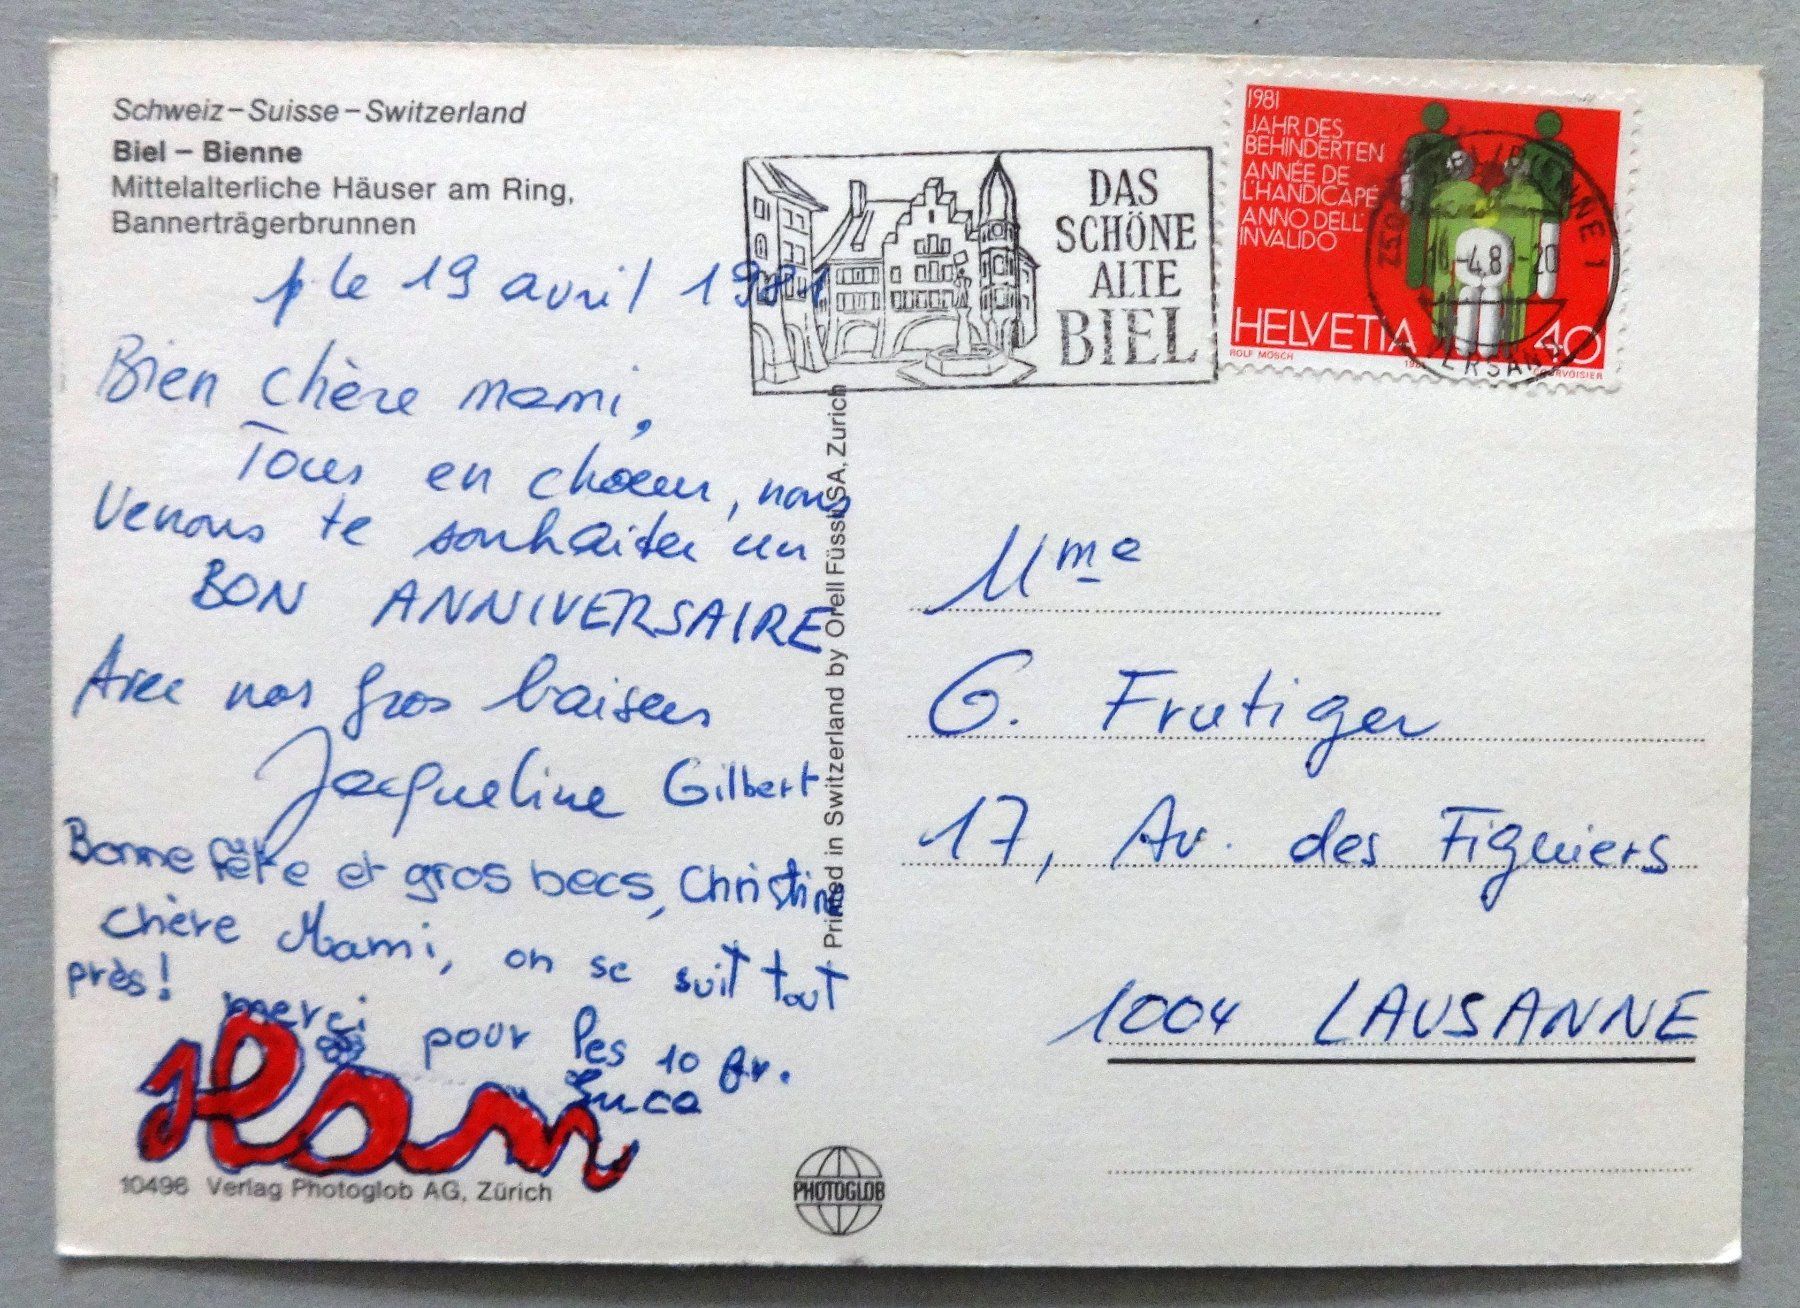 Schweiz–Suisse–Switzerland
Biel – Bienne
Mittelalterliche Häuser am Ring,
Bannerträgerbrunnen
le 19 avril 1981
Bien chère mami,
Tous en choeur, nous
venons te souhaiter un
BON ANNIVERSAIRE
Avec nos gros baisers
Jacqueline Gilbert
Bonne fête et gros becs, Christine
chère Mami, on se suit tout
près!
merci pour les 10 fr.
Luca
10496 Verlag Photoglob AG, Zürich
Printed in Switzerland by Orell Füssli SA, Zurich
PHOTOGLOB
DAS
SCHÖNE
ALTE
BIEL
1981
JAHR DES
BEHINDERTEN
ANNÉE DE
L'HANDICAPÉ
ANNO DELL'
INVALIDO
HELVETIA 40
ROLF MOSCH
COURVOISIER
BIENNE 1
-4.81-20
VERSAND
Mme
G. Frutiger
17, Av. des Figuiers
1004 LAUSANNE